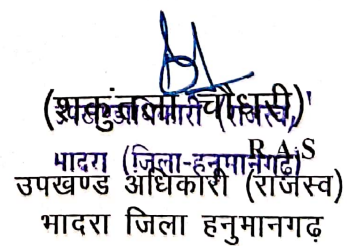 (शकुंतला चौधरी)
उपखण्ड अधिकारी (राजस्व)
R A S
भादरा (जिला-हनुमानगढ़)
उपखण्ड अधिकारी (राजस्व)
भादरा जिला हनुमानगढ़